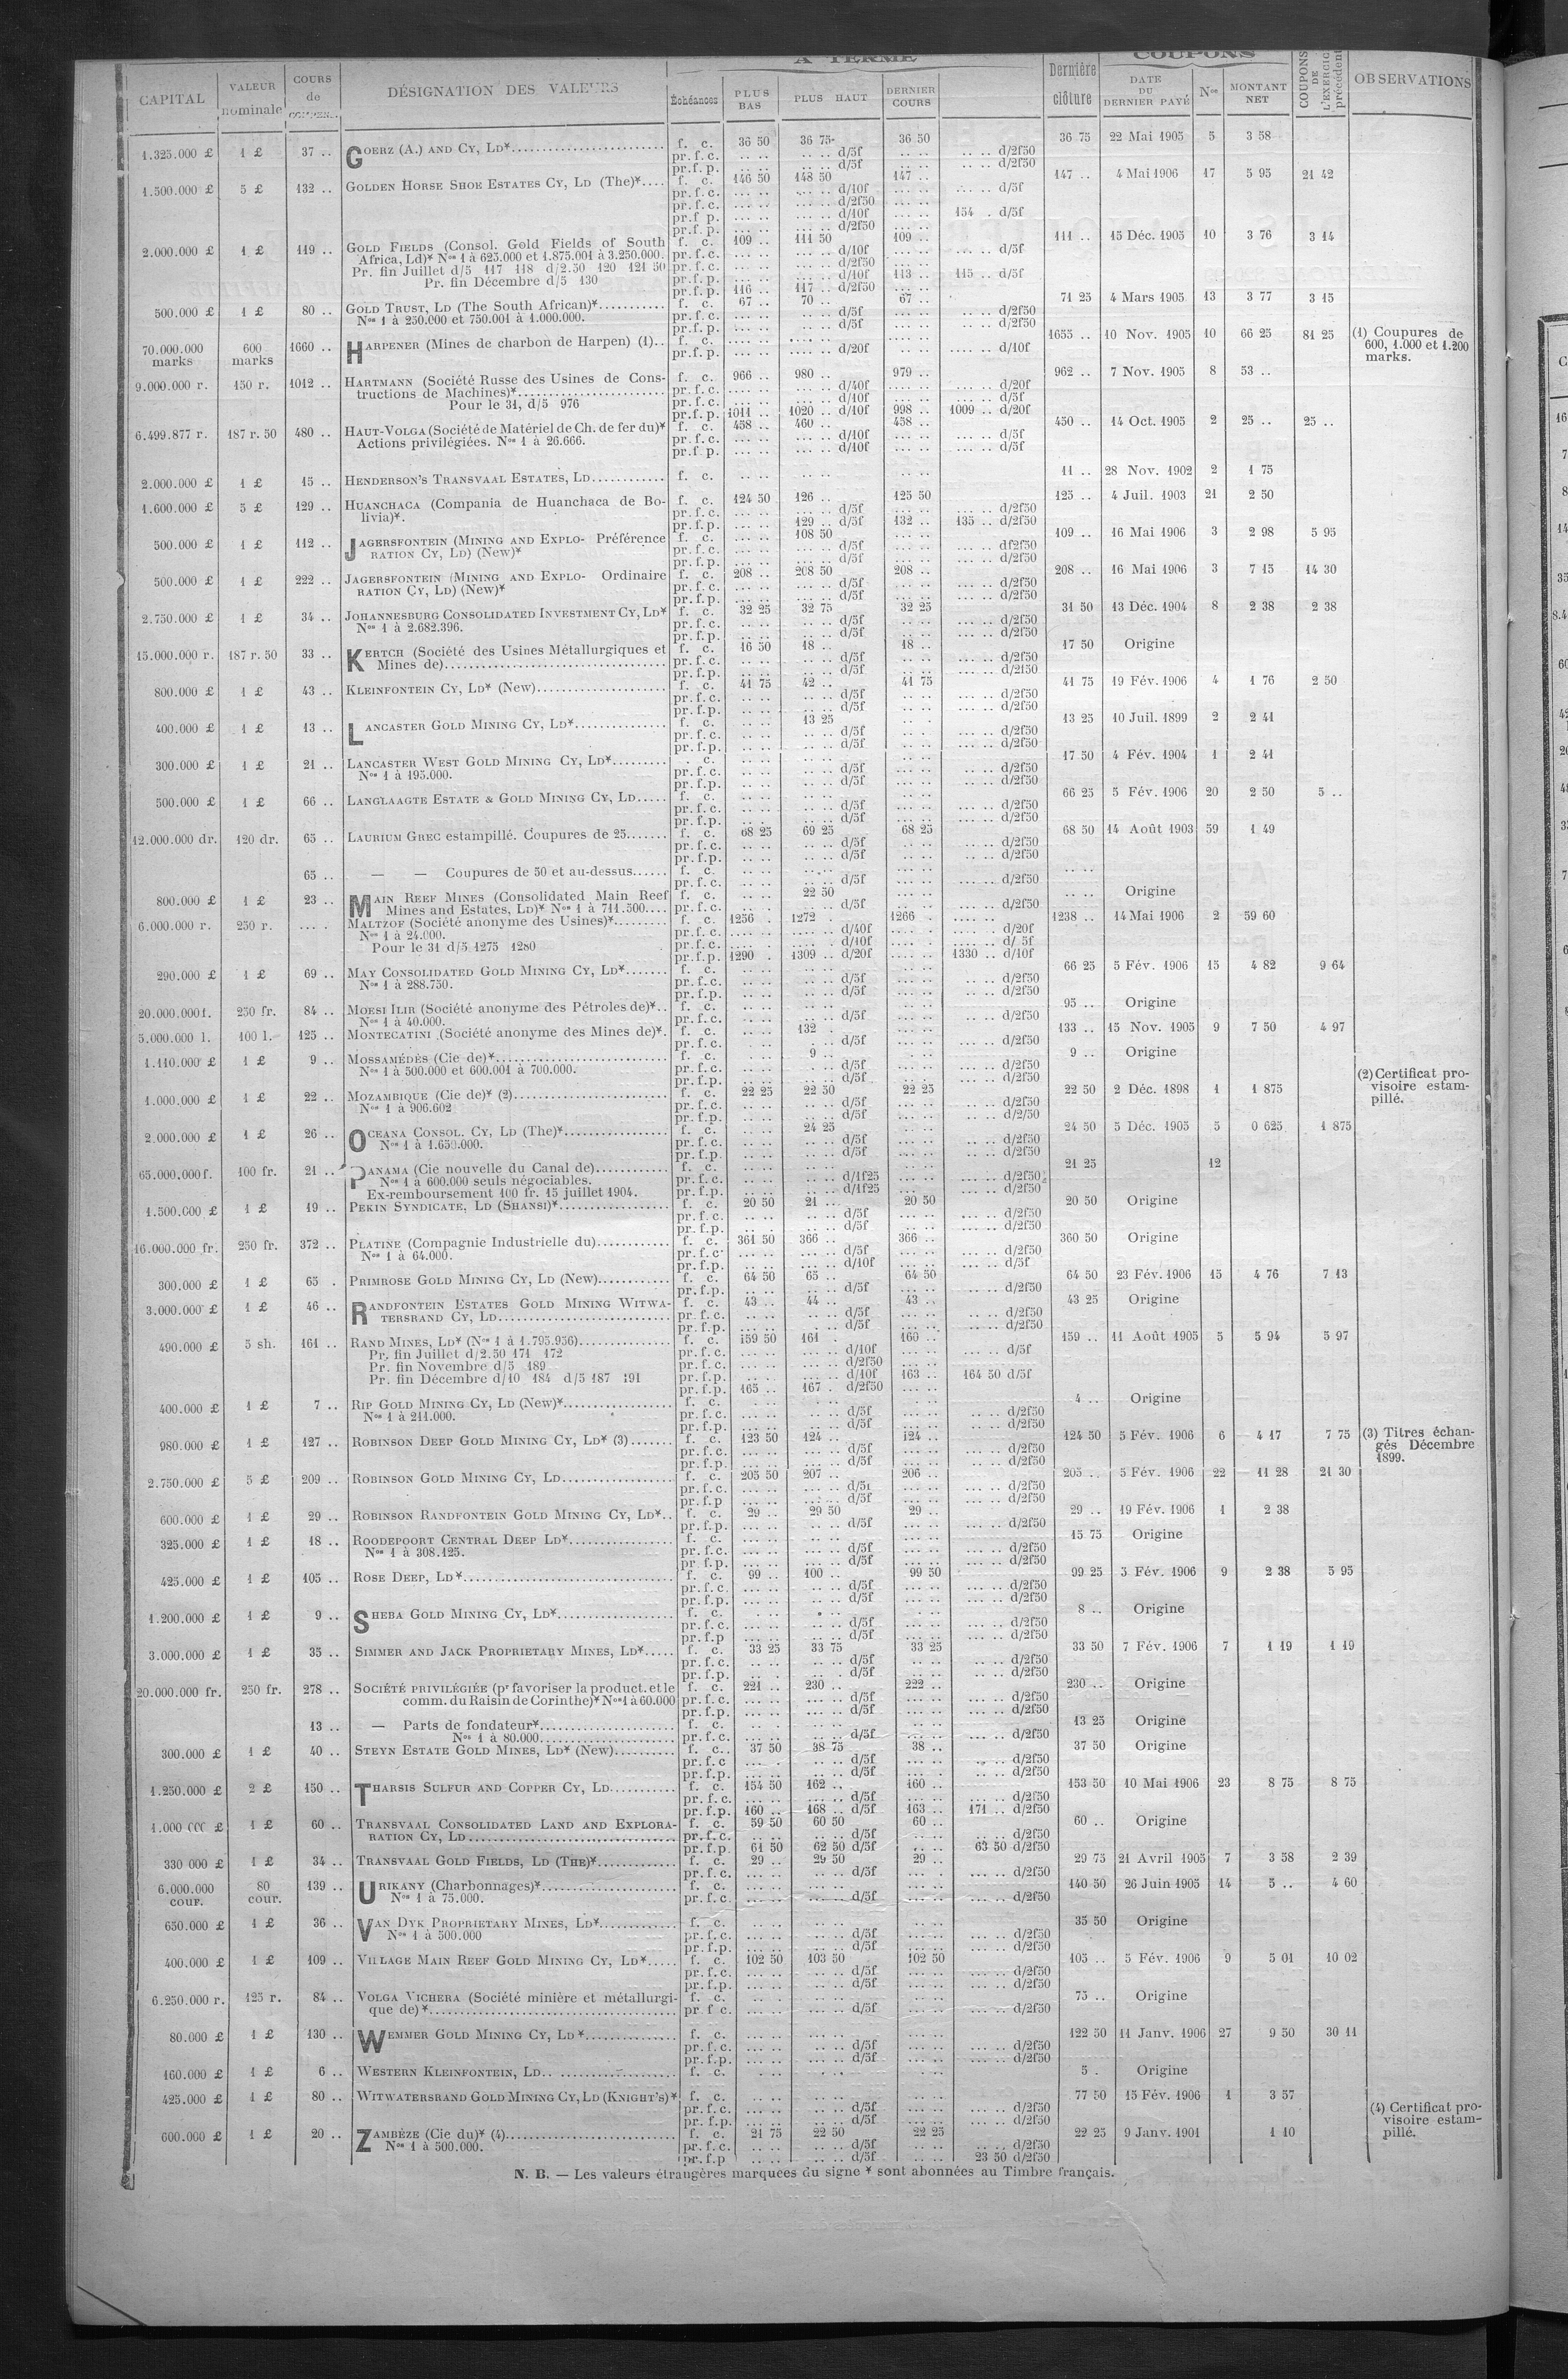 A TERME COUPONS
CAPITAL VALEUR nominale COURS de DÉSIGNATION DES VALEURS Échéances PLUS BAS PLUS HAUT DERNIER COURS Dernière clôture DATE DU DERNIER PAYÉ Nos MONTANT NET COUPONS DE L'EXERCICE précédent OBSERVATIONS
1.325.000 £ 1 £ 37 .. GOERZ (A.) AND CY, LD* f. c. 36 50 36 75 36 50 36 75 22 Mai 1905 5 3 58
pr. f. c. d/5f d/2f50
pr. f. p. d/5f d/2f50
1.500.000 £ 5 £ 132 .. GOLDEN HORSE SHOE ESTATES CY, LD (The)* f. c. 146 50 148 50 147 .. 147 .. 4 Mai 1906 17 5 95 21 42
pr. f. c. d/10f d/5f
pr. f. c. d/2f50
pr. f. p. d/10f 154 . d/5f
pr. f. p. d/2f50
2.000.000 £ 1 £ 119 .. GOLD FIELDS (Consol. Gold Fields of South f. c. 109 .. 111 50 109 .. 111 .. 15 Déc. 1905 10 3 76 3 14
Africa, Ld)* Nos 1 à 625.000 et 1.875.001 à 3.250.000. pr. f. c. d/10f d/5f
Pr. fin Juillet d/5 117 118 d/2.50 120 121 50 pr. f. c. d/2f50
Pr. fin Décembre d/5 130 pr. f. p. d/10f 113 .. 115 .. d/5f
pr. f. p. 116 .. 117 .. d/2f50
500.000 £ 1 £ 80 .. GOLD TRUST, LD (The South African)* f. c. 67 .. 70 .. 67 .. 71 25 4 Mars 1905 13 3 77 3 15
Nos 1 à 250.000 et 750.001 à 1.000.000. pr. f. c. d/5f d/2f50
pr. f. p. d/5f d/2f50
70.000.000 marks 600 marks 1660 .. HARPENER (Mines de charbon de Harpen) (1).. f. c. 1655 .. 10 Nov. 1905 10 66 25 81 25 (1) Coupures de 600, 1.000 et 1.200 marks.
pr. f. p. d/20f d/10f
9.000.000 r. 150 r. 1012 .. HARTMANN (Société Russe des Usines de Cons- f. c. 966 .. 980 .. 979 .. 962 .. 7 Nov. 1905 8 53 ..
tructions de Machines)* pr. f. c. d/40f d/20f
Pour le 31, d/5 976 pr. f. c. d/10f d/5f
pr. f. p. 1011 .. 1020 .. d/10f 998 .. 1009 .. d/20f
6.499.877 r. 187 r. 50 480 .. HAUT-VOLGA (Société de Matériel de Ch. de fer du)* f. c. 458 .. 460 .. 458 .. 450 .. 14 Oct. 1905 2 25 .. 25 ..
Actions privilégiées. Nos 1 à 26.666. pr. f. c. d/10f d/5f
pr. f. p. d/10f d/5f
2.000.000 £ 1 £ 15 .. HENDERSON'S TRANSVAAL ESTATES, LD f. c. 11 .. 28 Nov. 1902 2 1 75
1.600.000 £ 5 £ 129 .. HUANCHACA (Compania de Huanchaca de Bo- f. c. 124 50 126 .. 125 50 125 .. 4 Juil. 1903 21 2 50
livia)*. pr. f. c. d/5f d/2f50
pr. f. p. 129 .. d/5f 132 .. 135 .. d/2f50
500.000 £ 1 £ 112 .. JAGERSFONTEIN (MINING AND EXPLO- Préférence f. c. 108 50 109 .. 16 Mai 1906 3 2 98 5 95
RATION CY, LD) (New)* pr. f. c. d/5f df2f50
pr. f. p. d/5f d/2f50
500.000 £ 1 £ 222 .. JAGERSFONTEIN (MINING AND EXPLO- Ordinaire f. c. 208 .. 208 50 208 .. 208 .. 16 Mai 1906 3 7 15 14 30
RATION CY, LD) (New)* pr. f. c. d/5f d/2f50
pr. f. p. d/5f d/2f50
2.750.000 £ 1 £ 34 .. JOHANNESBURG CONSOLIDATED INVESTMENT CY, LD* f. c. 32 25 32 75 32 25 31 50 13 Déc. 1904 8 2 38 2 38
Nos 1 à 2.682.396. pr. f. c. d/5f d/2f50
pr. f. p. d/5f d/2f50
15.000.000 r. 187 r. 50 33 .. KERTCH (Société des Usines Métallurgiques et f. c. 16 50 18 .. 18 .. 17 50 Origine
Mines de) pr. f. c. d/5f d/2f50
pr. f. p. d/5f d/2f50
800.000 £ 1 £ 43 .. KLEINFONTEIN CY, LD* (New) f. c. 41 75 42 .. 41 75 41 75 19 Fév. 1906 4 1 76 2 50
pr. f. c. d/5f d/2f50
pr. f. p. d/5f d/2f50
400.000 £ 1 £ 13 .. LANCASTER GOLD MINING CY, LD* f. c. 13 25 13 25 10 Juil. 1899 2 2 41
pr. f. c. d/5f d/2f50
pr. f. p. d/5f d/2f50
300.000 £ 1 £ 21 .. LANCASTER WEST GOLD MINING CY, LD* . c. 17 50 4 Fév. 1904 1 2 41
Nos 1 à 195.000. pr. f. c. d/5f d/2f50
pr. f. p. d/5f d/2f50
500.000 £ 1 £ 66 .. LANGLAAGTE ESTATE & GOLD MINING CY, LD f. c. 66 25 5 Fév. 1906 20 2 50 5 ..
pr. f. c. d/5f d/2f50
pr. f. p. d/5f d/2f50
12.000.000 dr. 120 dr. 65 .. LAURIUM GREC estampillé. Coupures de 25 f. c. 68 25 69 25 68 25 68 50 14 Août 1903 59 1 49
pr. f. c. d/5f d/2f50
pr. f. p. d/5f d/2f50
65 .. — — Coupures de 50 et au-dessus f. c.
pr. f. c. d/5f d/2f50
800.000 £ 1 £ 23 .. MAIN REEF MINES (Consolidated Main Reef f. c. 22 50 Origine
Mines and Estates, LD)* Nos 1 à 711.500 pr. f. c. d/5f d/2f50
6.000.000 r. 250 r. MALTZOF (Société anonyme des Usines)* f. c. 1256 . 1272 . 1266 . 1238 .. 14 Mai 1906 2 59 60
Nos 1 à 24.000. pr. f. c. d/40f d/20f
Pour le 31 d/5 1275 1280 pr. f. c. d/10f d/ 5f
pr. f. p. 1290 . 1309 .. d/20f 1330 .. d/10f
290.000 £ 1 £ 69 .. MAY CONSOLIDATED GOLD MINING CY, LD* f. c. 66 25 5 Fév. 1906 15 4 82 9 64
Nos 1 à 288.750. pr. f. c. d/5f d/2f50
pr. f. p. d/5f d/2f50
20.000.000 f. 250 fr. 84 .. MOESI ILIR (Société anonyme des Pétroles de)*.. f. c. 95 .. Origine
Nos 1 à 40.000. pr. f. c. d/5f d/2f50
5.000.000 l. 100 l. 125 .. MONTECATINI (Société anonyme des Mines de)*. f. c. 132 . 133 .. 15 Nov. 1905 9 7 50 4 97
pr. f. c. d/5f d/2f50
1.110.000 £ 1 £ 9 .. MOSSAMÉDÈS (Cie de)* f. c. 9 .. 9 .. Origine
Nos 1 à 500.000 et 600.001 à 700.000. pr. f. c. d/5f d/2f50
pr. f. p. d/5f d/2f50
1.000.000 £ 1 £ 22 .. MOZAMBIQUE (Cie de)* (2) f. c. 22 25 22 50 22 25 22 50 2 Déc. 1898 1 1 875 (2) Certificat provisoire estampillé.
Nos 1 à 906.602 pr. f. c. d/5f d/2f50
pr. f. p. d/5f d/2/50
2.000.000 £ 1 £ 26 .. OCEANA CONSOL. CY, LD (The)* f. c. 24 25 24 50 5 Déc. 1905 5 0 625 1 875
Nos 1 à 1.650.000. pr. f. c. d/5f d/2f50
pr. f. p. d/5f d/2f50
65.000.000 f. 100 fr. 21 .. PANAMA (Cie nouvelle du Canal de) f. c. 21 25 12
Nos 1 à 600.000 seuls négociables. pr. f. c. d/1f25 d/2f50
Ex-remboursement 100 fr. 15 juillet 1904. pr. f. p. d/1f25 d/2f50
1.500.000 £ 1 £ 19 .. PEKIN SYNDICATE, LD (SHANSI)* f. c. 20 50 21 .. 20 50 20 50 Origine
pr. f. c. d/5f d/2f50
pr. f. p. d/5f d/2f50
16.000.000 fr. 250 fr. 372 .. PLATINE (Compagnie Industrielle du) f. c. 361 50 366 .. 366 .. 360 50 Origine
Nos 1 à 64.000. pr. f. c. d/5f d/2f50
pr. f. p. d/10f d/5f
300.000 £ 1 £ 65 . PRIMROSE GOLD MINING CY, LD (New) f. c. 64 50 65 .. 64 50 64 50 23 Fév. 1906 15 4 76 7 13
pr. f. p. d/5f d/2f50
3.000.000 £ 1 £ 46 .. RANDFONTEIN ESTATES GOLD MINING WITWA- f. c. 43 .. 44 .. 43 .. 43 25 Origine
TERSRAND CY, LD pr. f. c. d/5f d/2f50
pr. f. p. d/5f d/2f50
490.000 £ 5 sh. 161 .. RAND MINES, LD* (Nos 1 à 1.795.956) f. c. 159 50 161 . 160 .. 159 .. 11 Août 1905 5 5 94 5 97
Pr. fin Juillet d/2.50 171 172 pr. f. c. d/10f d/5f
Pr. fin Novembre d/5 189 pr. f. c. d/2f50
Pr. fin Décembre d/10 184 d/5 187 191 pr. f. p. d/10f 163 .. 164 50 d/5f
pr. f. p. 165 .. 167 . d/2f50
400.000 £ 1 £ 7 .. RIP GOLD MINING CY, LD (New)* f. c. 4 .. Origine
Nos 1 à 211.000. pr. f. c. d/5f d/2f50
pr. f. p. d/5f d/2f50
980.000 £ 1 £ 127 .. ROBINSON DEEP GOLD MINING CY, LD* (3) f. c. 123 50 124 .. 124 .. 124 50 5 Fév. 1906 6 4 17 7 75 (3) Titres échangés Décembre 1899.
pr. f. c. d/5f d/2f50
pr. f. p. d/5f d/2f50
2.750.000 £ 5 £ 209 .. ROBINSON GOLD MINING CY, LD f. c. 205 50 207 .. 206 .. 205 .. 5 Fév. 1906 22 11 28 21 30
pr. f. c. d/5f d/2f50
pr. f. p d/5f d/2f50
600.000 £ 1 £ 29 .. ROBINSON RANDFONTEIN GOLD MINING CY, LD*.. f. c. 29 .. 29 50 29 .. 29 .. 19 Fév. 1906 1 2 38
pr. f. p. d/5f d/2f50
325.000 £ 1 £ 18 .. ROODEPOORT CENTRAL DEEP LD* f. c. 15 75 Origine
Nos 1 à 308.125. pr. f. c. d/5f d/2f50
pr. f. p. d/5f d/2f50
425.000 £ 1 £ 105 .. ROSE DEEP, LD* f. c. 99 .. 100 .. 99 50 99 25 3 Fév. 1906 9 2 38 5 95
pr. f. c. d/5f d/2f50
pr. f. p. d/5f d/2f50
1.200.000 £ 1 £ 9 .. SHEBA GOLD MINING CY, LD* f. c. 8 .. Origine
pr. f. c. d/5f d/2f50
pr. f. p d/5f d/2f50
3.000.000 £ 1 £ 35 .. SIMMER AND JACK PROPRIETARY MINES, LD* f. c. 33 25 33 75 33 25 33 50 7 Fév. 1906 7 1 19 1 19
pr. f. c. d/5f d/2f50
pr. f. p. d/5f d/2f50
20.000.000 fr. 250 fr. 278 .. SOCIÉTÉ PRIVILÉGIÉE (pr favoriser la product. et le f. c. 221 .. 230 .. 222 .. 230 .. Origine
comm. du Raisin de Corinthe)* Nos 1 à 60.000 pr. f. c. d/5f d/2f50
pr. f. p. d/5f d/2f50
13 .. — Parts de fondateur* f. c. 13 25 Origine
Nos 1 à 80.000 pr. f. c. d/5f d/2f50
300.000 £ 1 £ 40 .. STEYN ESTATE GOLD MINES, LD* (New) f. c. 37 50 38 75 38 .. 37 50 Origine
pr. f. c d/5f d/2f50
pr. f. p. d/5f d/2f50
1.250.000 £ 2 £ 150 .. THARSIS SULFUR AND COPPER CY, LD f. c. 154 50 162 .. 160 .. 153 50 10 Mai 1906 23 8 75 8 75
pr. f. c. d/5f d/2f50
pr. f. p. 160 .. 168 .. d/5f 163 .. 171 .. d/2f50
1.000 000 £ 1 £ 60 .. TRANSVAAL CONSOLIDATED LAND AND EXPLORA- f. c. 59 50 60 50 60 .. 60 .. Origine
RATION CY, LD pr. f. c. d/5f d/2f50
pr. f. p. 61 50 62 50 d/5f 63 50 d/2f50
330 000 £ 1 £ 34 .. TRANSVAAL GOLD FIELDS, LD (THE)* f. c. 29 .. 29 50 29 .. 29 75 21 Avril 1905 7 3 58 2 39
pr. f. c. d/5f d/2f50
6.000.000 cour. 80 cour. 139 .. URIKANY (Charbonnages)* f. c. 140 50 26 Juin 1905 14 5 .. 4 60
Nos 1 à 75.000. pr. f. c. d/5f d/2f50
650.000 £ 1 £ 36 .. VAN DYK PROPRIETARY MINES, LD* f. c. 35 50 Origine
Nos 1 à 500.000 pr. f. c. d/5f d/2f50
pr. f. p. d/5f d/2f50
400.000 £ 1 £ 109 .. VILLAGE MAIN REEF GOLD MINING CY, LD* f. c. 102 50 103 50 102 50 105 .. 5 Fév. 1906 9 5 01 10 02
pr. f. c. d/5f d/2f50
pr. f. p. d/5f d/2f50
6.250.000 r. 125 r. 84 .. VOLGA VICHERA (Société minière et métallurgi- f. c. 75 .. Origine
que de)* pr. f c. d/5f d/2f50
80.000 £ 1 £ 130 .. WEMMER GOLD MINING CY, LD* f. c. 122 50 11 Janv. 1906 27 9 50 30 11
pr. f. c. d/5f d/2f50
pr. f. p. d/5f d/2f50
160.000 £ 1 £ 6 .. WESTERN KLEINFONTEIN, LD f. c. 5 . Origine
425.000 £ 1 £ 80 .. WITWATERSRAND GOLD MINING CY, LD (KNIGHT'S)* f. c. 77 50 15 Fév. 1906 1 3 57
pr. f. c. d/5f d/2f50
pr. f. p. d/5f d/2f50
600.000 £ 1 £ 20 .. ZAMBÈZE (Cie du)* (4) f. c. 21 75 22 50 22 25 22 25 9 Janv. 1901 1 10 (4) Certificat provisoire estampillé.
Nos 1 à 500.000. pr. f. c. d/5f d/2f50
pr. f. p d/5f 23 50 d/2f50
N. B. — Les valeurs étrangères marquées du signe * sont abonnées au Timbre français.